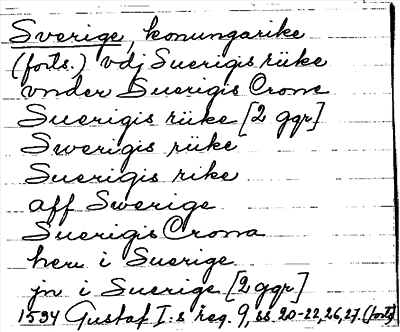 Sverige, konungarike
(forts.) vdj Suerigis rüke
vnder Suerigis Crone
Suerigis rüke [2 ggr]
Swerigis rüke
Suerigis rike
aff Swerige
Suerigis Crona
heru i Suerige
jn i Suerige [2 ggr]
1534 Gustaf I:s reg. 9, ss 20-22, 26, 27. (forts)